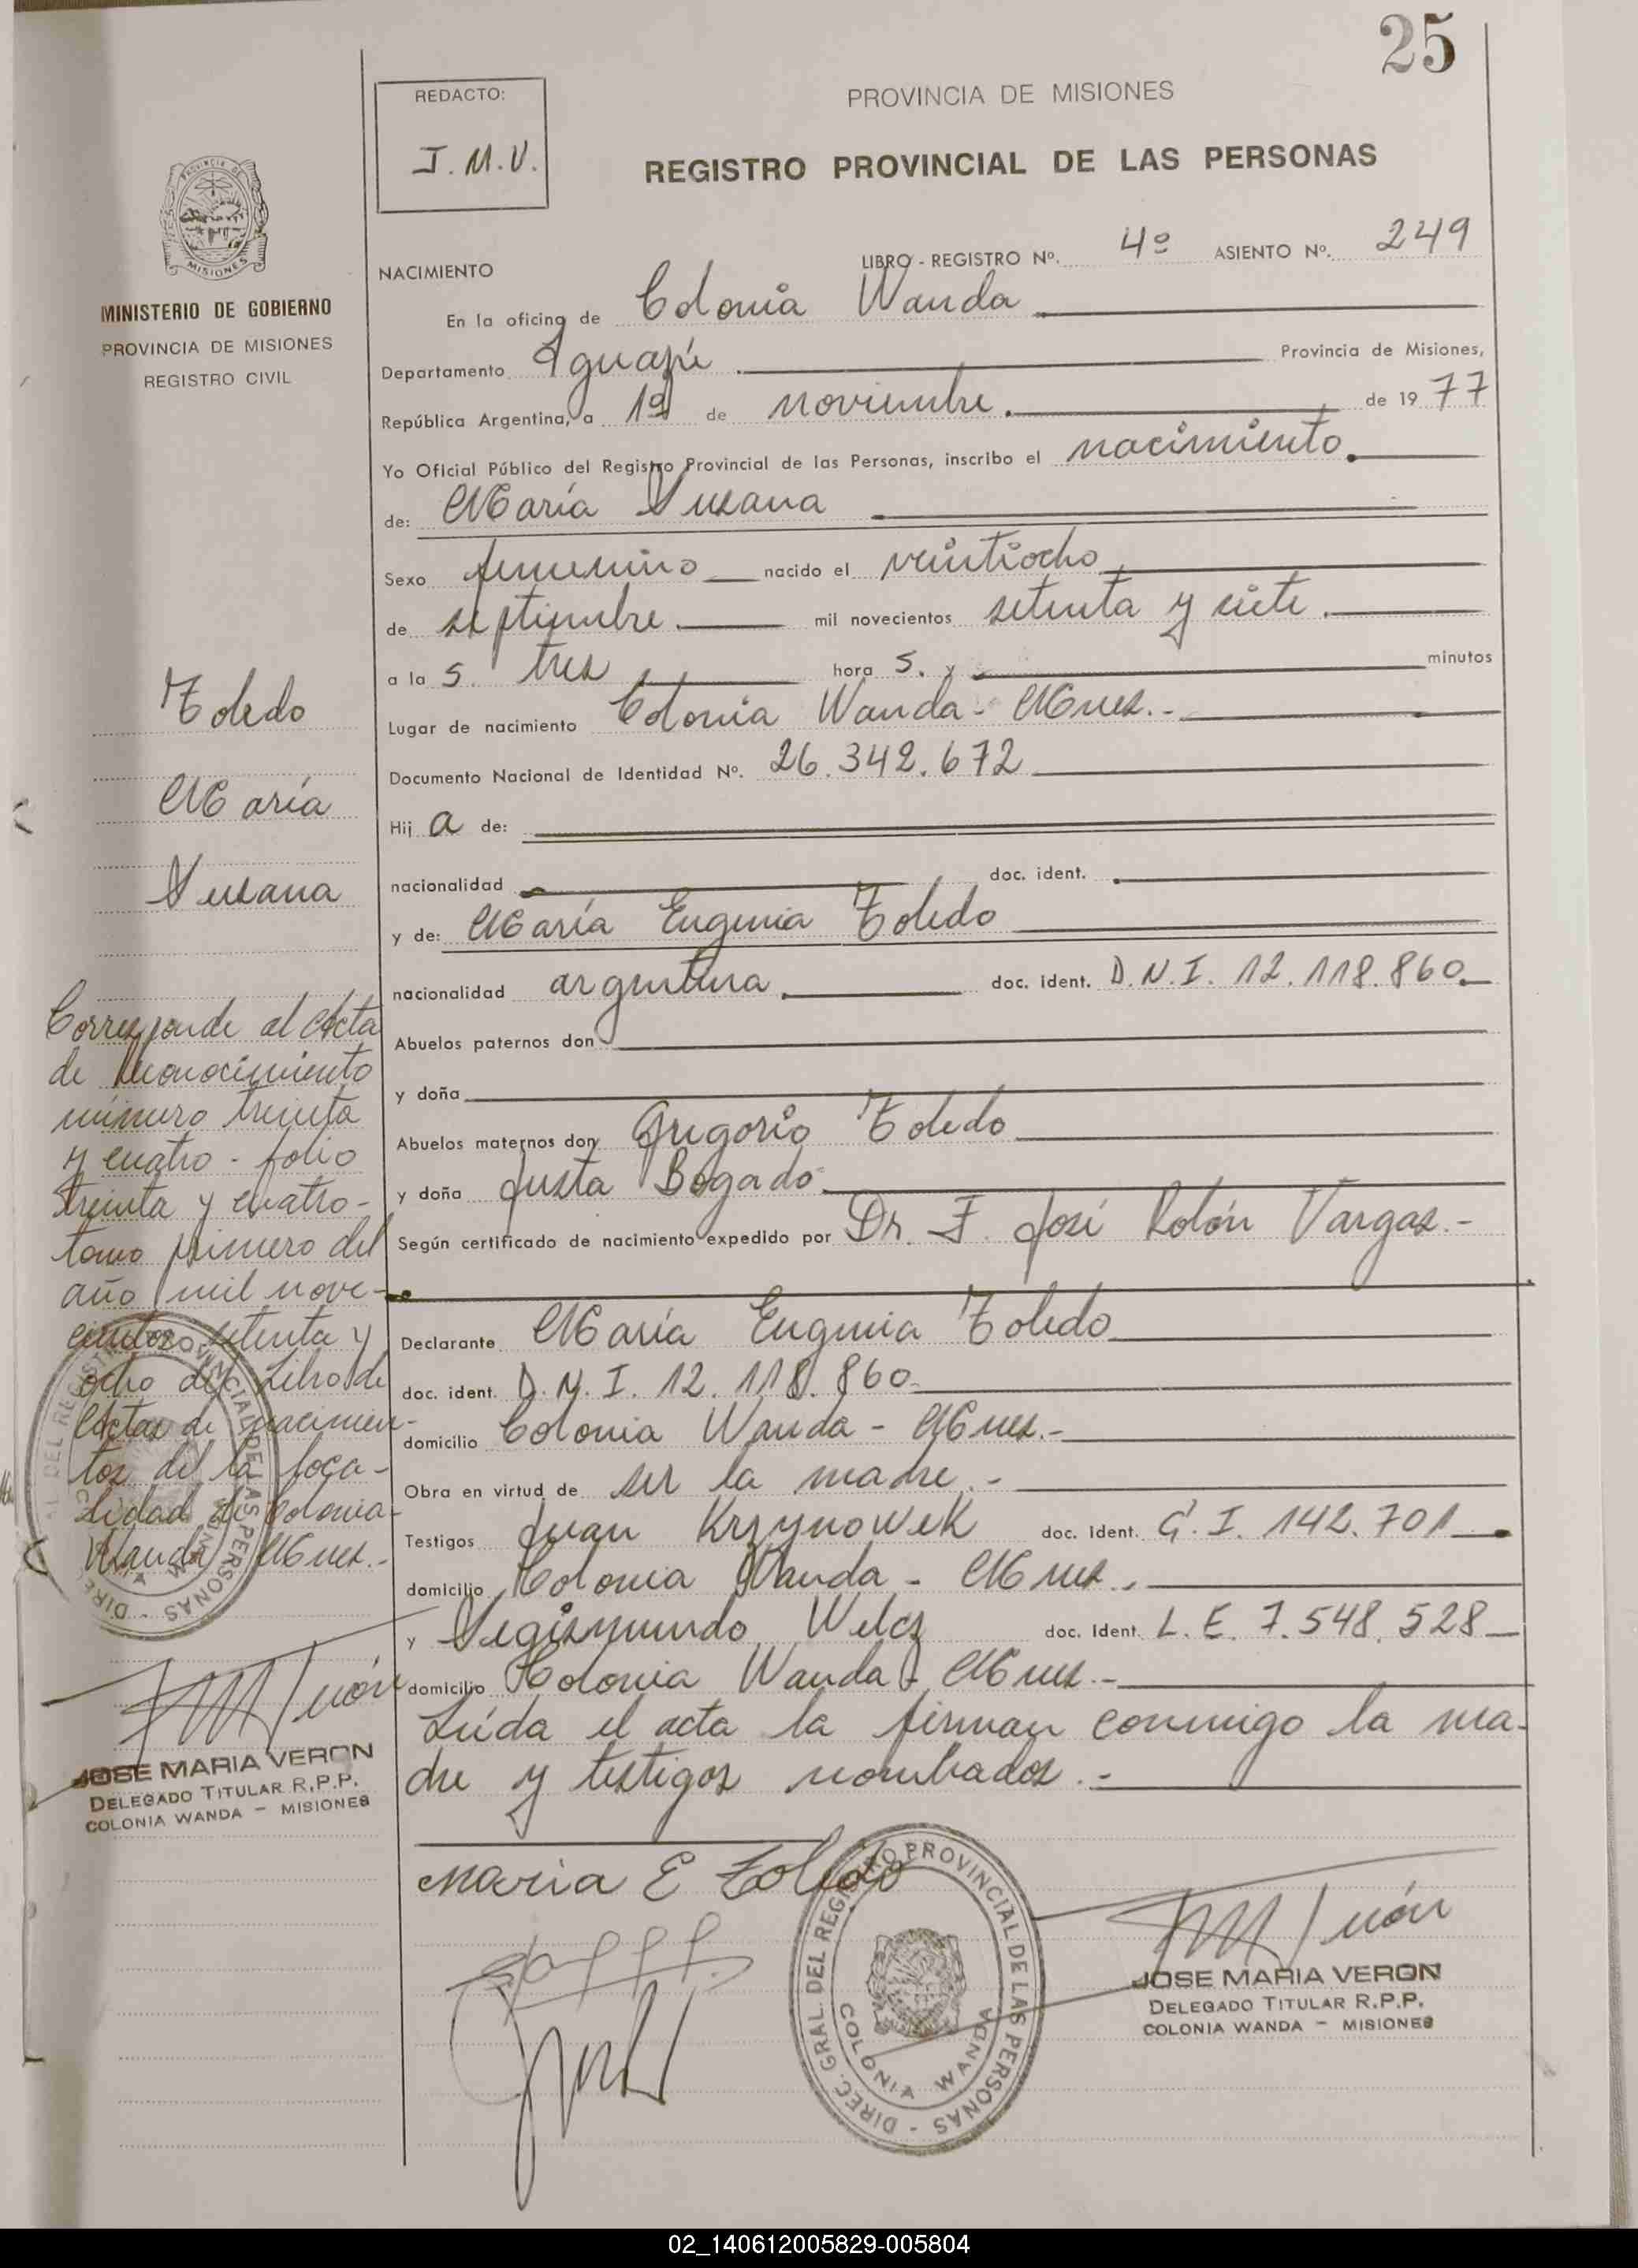 25
REDACTO:
J. M. V.
PROVINCIA DE MISIONES
REGISTRO PROVINCIAL DE LAS PERSONAS
PROVINCIA DE
MISIONES
MINISTERIO DE GOBIERNO
PROVINCIA DE MISIONES
REGISTRO CIVIL
NACIMIENTO LIBRO - REGISTRO Nº. 4º ASIENTO Nº. 249
En la oficina de Colonia Wanda
Departamento Iguazú Provincia de Misiones,
República Argentina, a 1º de noviembre. de 19 77
Yo Oficial Público del Registro Provincial de las Personas, inscribo el nacimiento.
de: María Susana
Sexo femenino nacido el veintiocho
de septiembre. mil novecientos setenta y siete.
a la s. tres hora s. y minutos
Lugar de nacimiento Colonia Wanda - Mnes.-
Documento Nacional de Identidad Nº. 26.342.672
Hij a de:
nacionalidad doc. ident.
y de: María Eugenia Toledo
nacionalidad argentina. doc. ident. D.N.I. 12.118.860
Abuelos paternos don
y doña
Abuelos maternos don Gregorio Toledo
y doña Justa Bogado
Según certificado de nacimiento expedido por Dr. F. José Rolón Vargas.-
Declarante María Eugenia Toledo
doc. ident. D.N.I. 12.118.860
domicilio Colonia Wanda - Mnes.-
Obra en virtud de ser la madre.-
Testigos Juan Krzynowek doc. Ident. C.I. 142.701
domicilio Colonia Wanda - Mnes.
y Segismundo Welcz doc. Ident. L.E. 7.548.528
domicilio Colonia Wanda - Mnes.-
Leída el acta la firman conmigo la ma-
dre y testigos nombrados.-
Maria E Toledo
Toledo
María
Susana
Corresponde al Acta
de Reconocimiento
número treinta
y cuatro - folio
treinta y cuatro -
tomo primero del
año mil nove-
cientos setenta y
ocho del Libro de
Actas de nacimien-
tos de la loca-
lidad de Colonia
Wanda Mnes.-
DIREC. GRAL. DEL REGISTRO PROVINCIAL DE LAS PERSONAS
COLONIA WANDA
JOSE MARIA VERON
DELEGADO TITULAR R.P.P.
COLONIA WANDA - MISIONES
DIREC. GRAL. DEL REGISTRO PROVINCIAL DE LAS PERSONAS
COLONIA WANDA
JOSE MARIA VERON
DELEGADO TITULAR R.P.P.
COLONIA WANDA - MISIONES
02_140612005829-005804